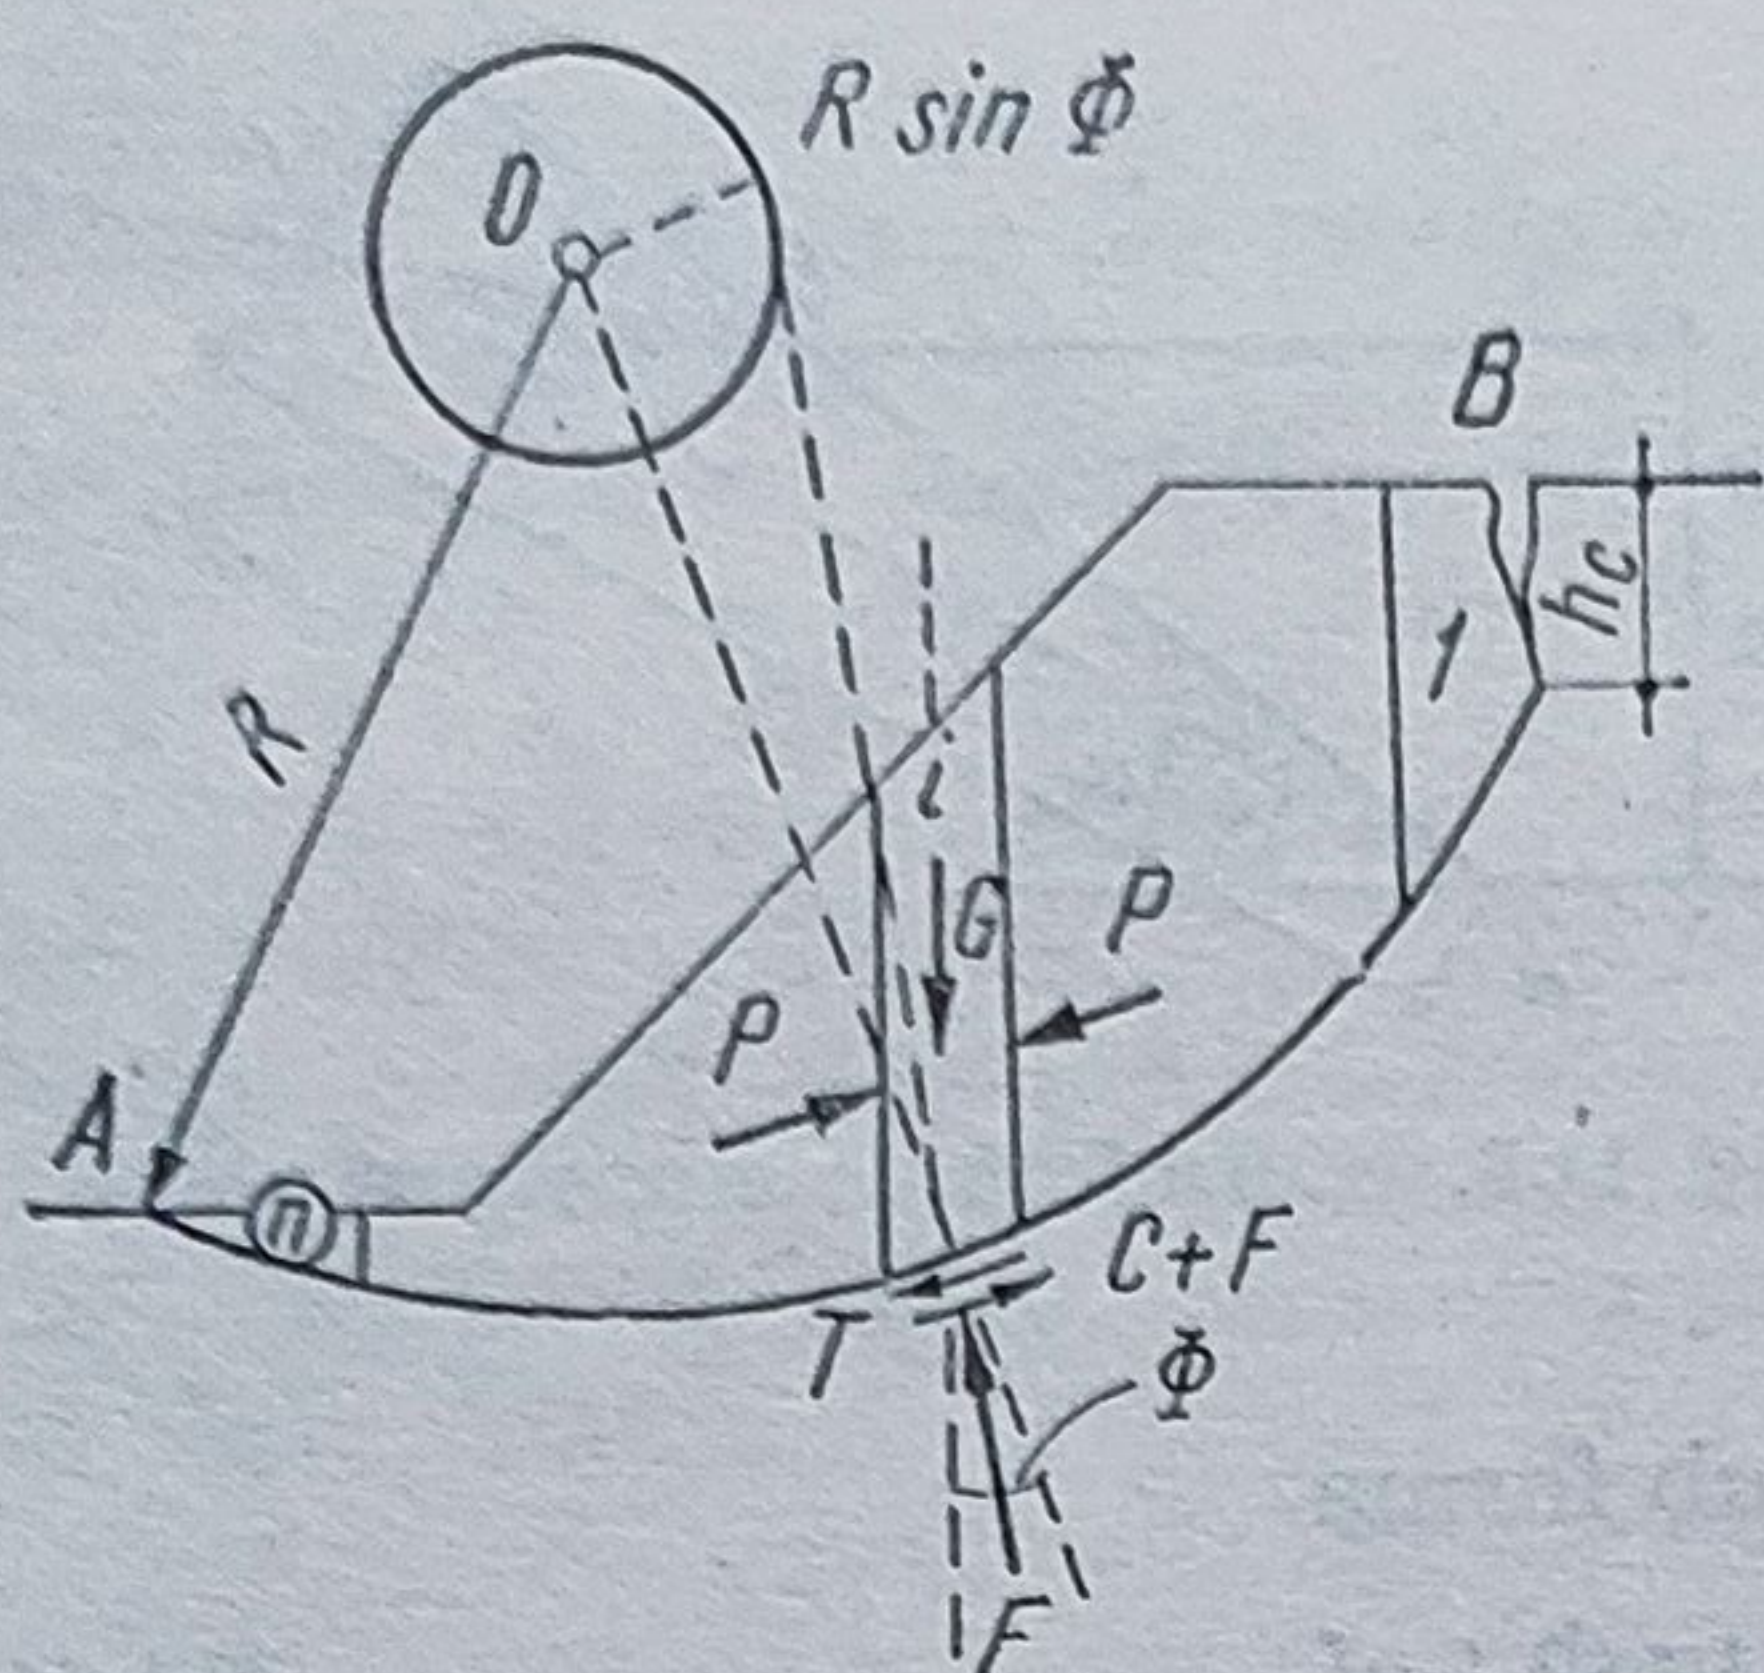 R sin Φ
O
B
hc
1
R
i
G
P
P
A
n
C+F
T
Φ
F